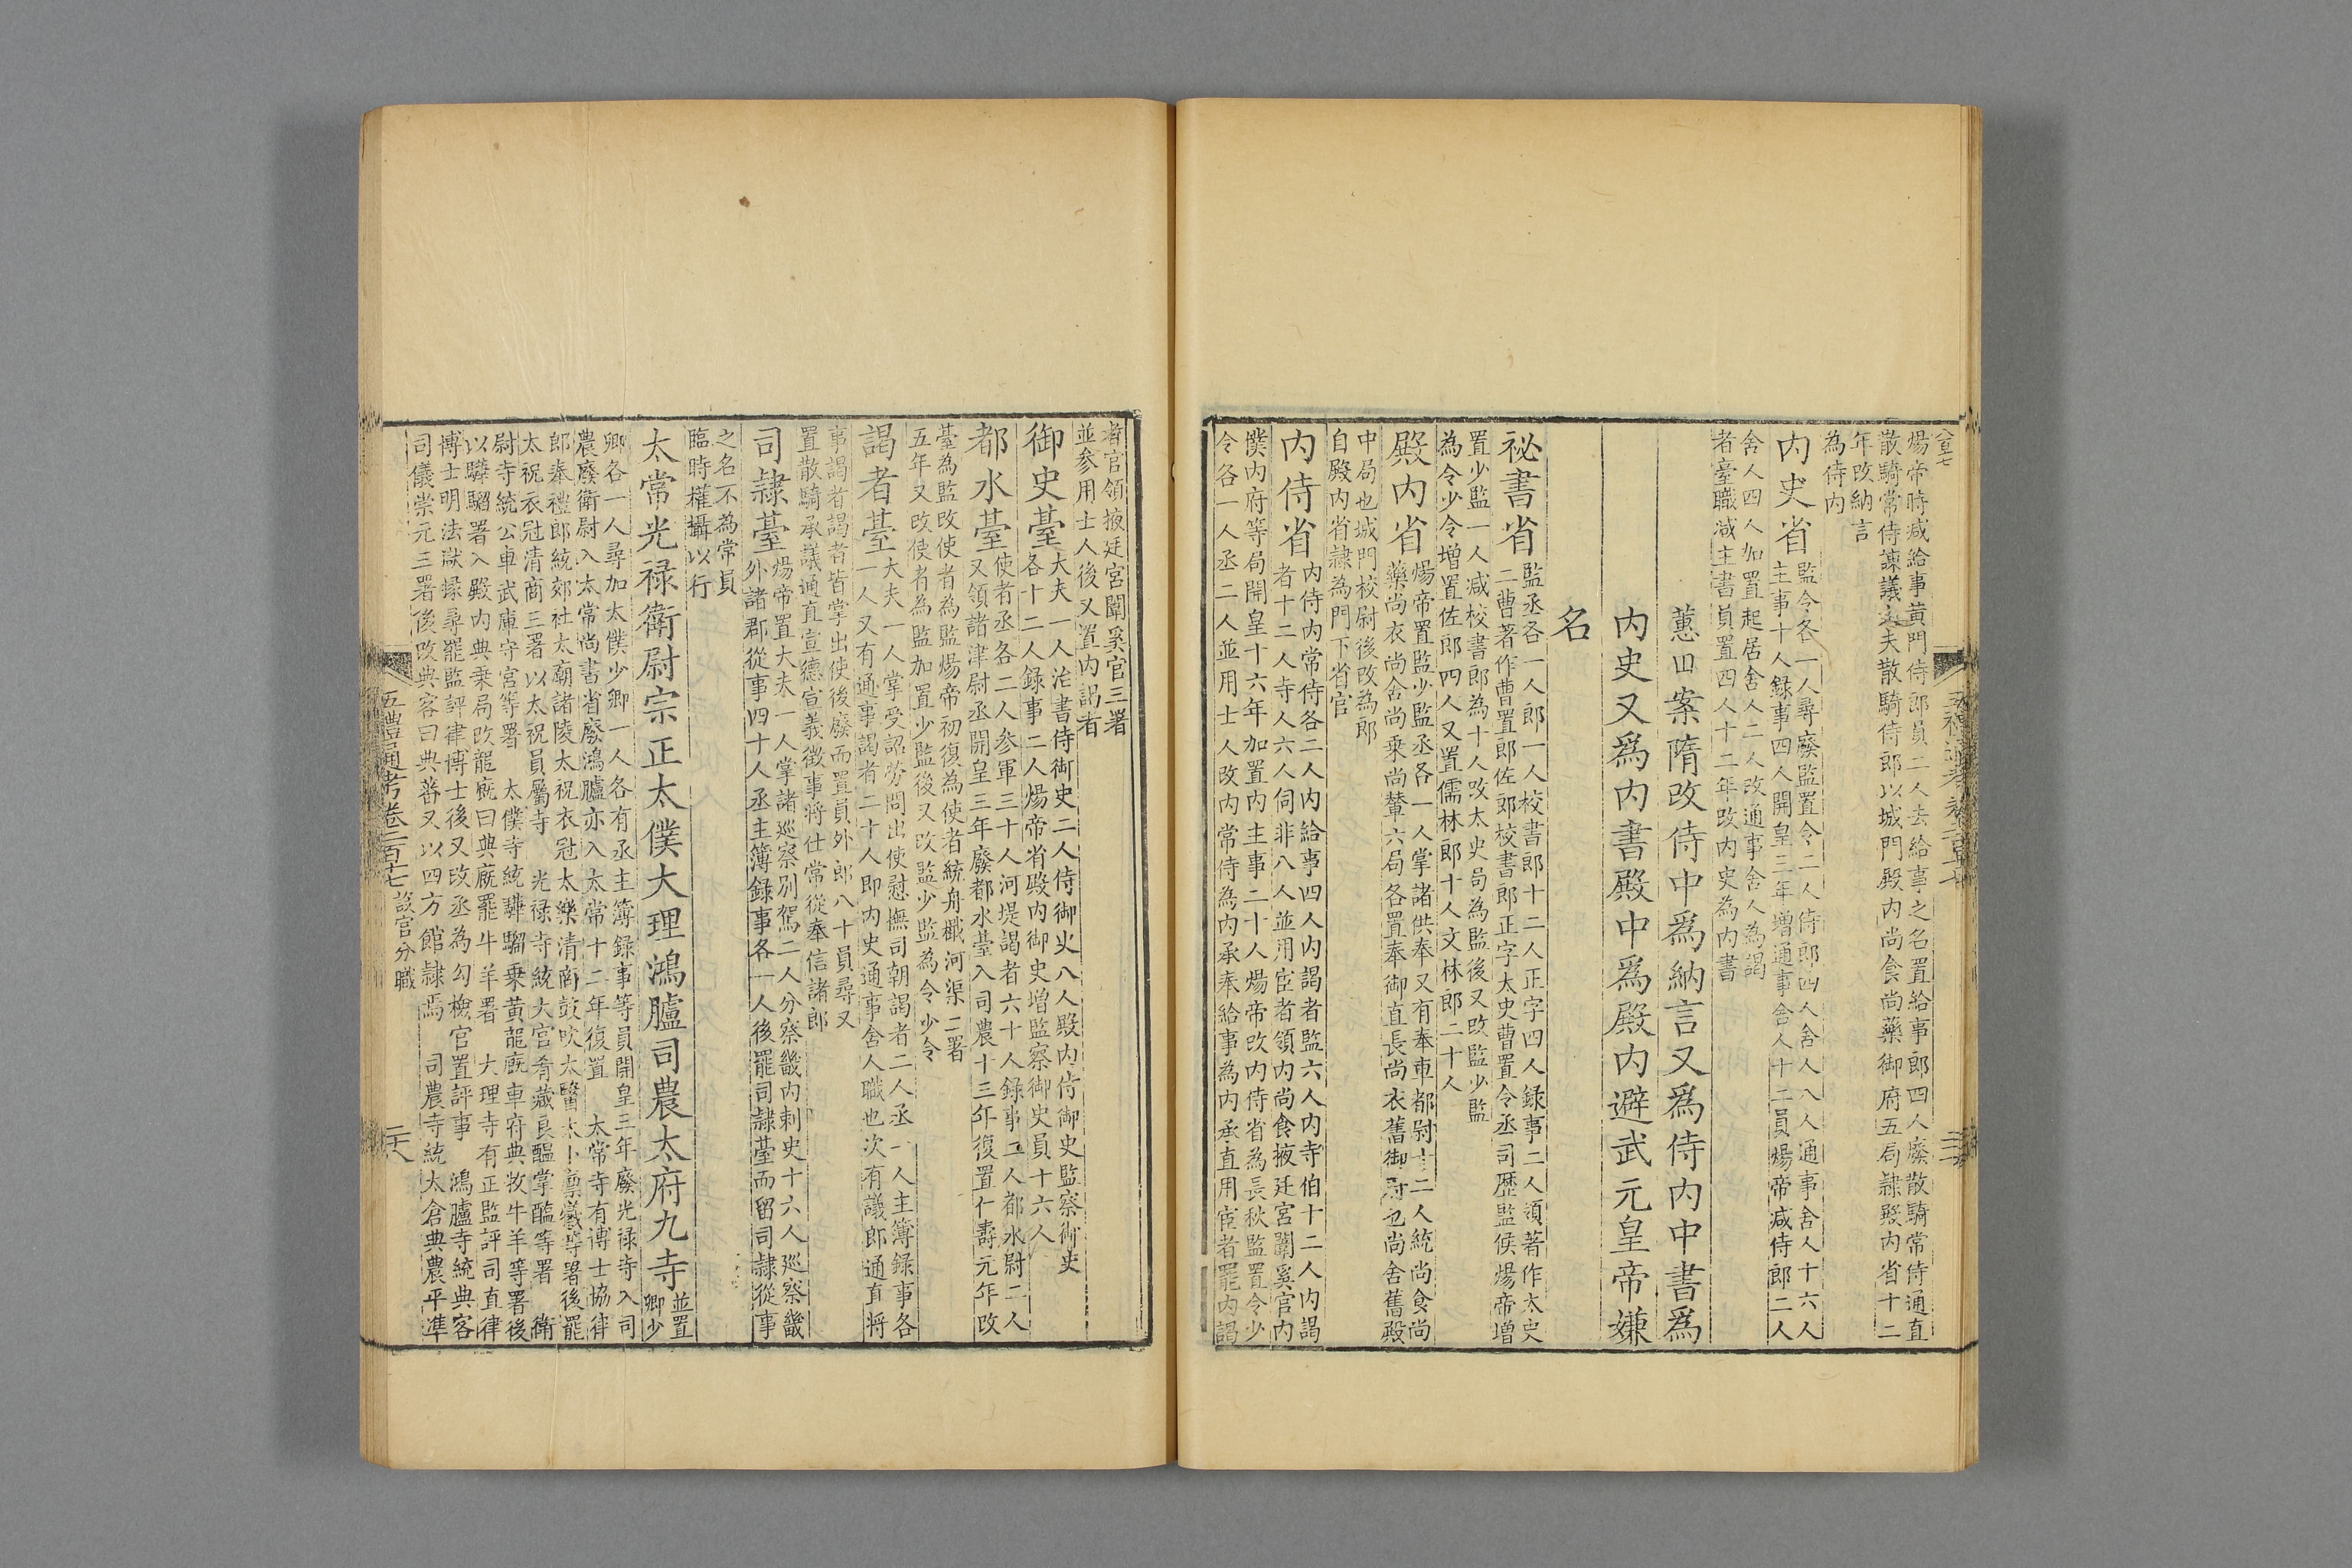 煬帝時減給事黃門侍郎員二人去給事之名置給事郎四人廢散騎常侍通直
散騎常侍諫議大夫散騎侍郎以城門殿内尚食尚藥御府五局隷殿内省十二
年改納言
為侍内
内史省監令各一人尋廢監置令二人侍郎四人舍人八人通事舍人十六人
主事十人錄事四人開皇三年增通事舍人十二員煬帝減侍郎二人
舍人四人加置起居舍人二人改通事舍人為謁
者臺職減主書員置四人十二年改内史為内書
蕙田案隋改侍中爲納言又爲侍内中書爲
内史又爲内書殿中爲殿内避武元皇帝嫌
名
祕書省監丞各一人郎一人校書郎十二人正字四人錄事二人須著作太史
二曹著作曹置郎佐郎校書郎正字太史曹置令丞司歷監候煬帝增
置少監一人減校書郎為十人改太史局為監後又改監少監
為令少令增置佐郎四人又置儒林郎十人文林郎二十人
殿内省煬帝置監少監丞各一人掌諸供奉又有奉車都尉十二人統尚食尚
藥尚衣尚舍尚乘尚輦六局各置奉御直長尚衣舊御府也尚舍舊殿
中局也城門校尉後改為郎
自殿内省隷為門下省官
内侍省内侍内常侍各二人内給事四人内謁者監六人内寺伯十二人内謁
者十二人寺人六人伺非八人並用宦者領内尚食掖廷宮闈奚官内
僕内府等局開皇十六年加置内主事二十人煬帝改内侍省為長秋監置令少
令各一人丞二人並用士人改内常侍為内承奉給事為内承直用宦者罷内謁
者官領掖廷宮闈奚官三署
並參用士人後又置内謁者
御史臺大夫一人治書侍御史二人侍御史八人殿内侍御史監察御史
各十二人錄事二人煬帝省殿内御史增監察御史員十六人
都水臺使者丞各二人參軍三十人河堤謁者六十人錄事二人都水尉二人
又領諸津尉丞開皇三年廢都水臺入司農十三年復置仁壽元年改
臺為監改使者為監煬帝初復為使者統舟檝河渠二署
五年又改使者為監加置少監後又改監少監為令少令
謁者臺大夫一人掌受詔勞問出使慰撫司朝謁者二人丞一人主簿錄事各
一人又有通事謁者二十人即内史通事舍人職也次有議郎通直將
事謁者謁者皆掌出使後廢而置員外郎八十員尋又
置散騎承議通直宣德宣義徵事將仕常從奉信諸郎
司隷臺煬帝置大夫一人掌諸巡察别駕二人分察畿内刺史十六人巡察畿
外諸郡從事四十人丞主簿錄事各一人後罷司隷臺而留司隷從事
之名不為常員
臨時權攝以行
太常光禄衛尉宗正太僕大理鴻臚司農太府九寺並置
卿少
卿各一人尋加太僕少卿一人各有丞主簿錄事等員開皇三年廢光禄寺入司
農廢衛尉入太常尚書省廢鴻臚亦入太常十二年復置　太常寺有博士協律
郎奉禮郎統郊社太廟諸陵太祝衣冠太樂清商鼓吹太醫太卜廩犧等署後罷
太祝衣冠清商三署以太祝員屬寺　光禄寺統大官肴藏良醖掌醢等署　衛
尉寺統公車武庫守宮等署　太僕寺統驊騮乘黃龍廐車府典牧牛羊等署後
以驊騮署入殿内典乗局改龍廐曰典廐罷牛羊署　大理寺有正監評司直律
博士明法獄掾尋罷監評律博士後又改丞為勾檢官置評事　鴻臚寺統典客
司儀崇元三署後改典客曰典蕃又以四方館隷焉　司農寺統太倉典農平準
五禮通考卷二百十七　設官分職
二六